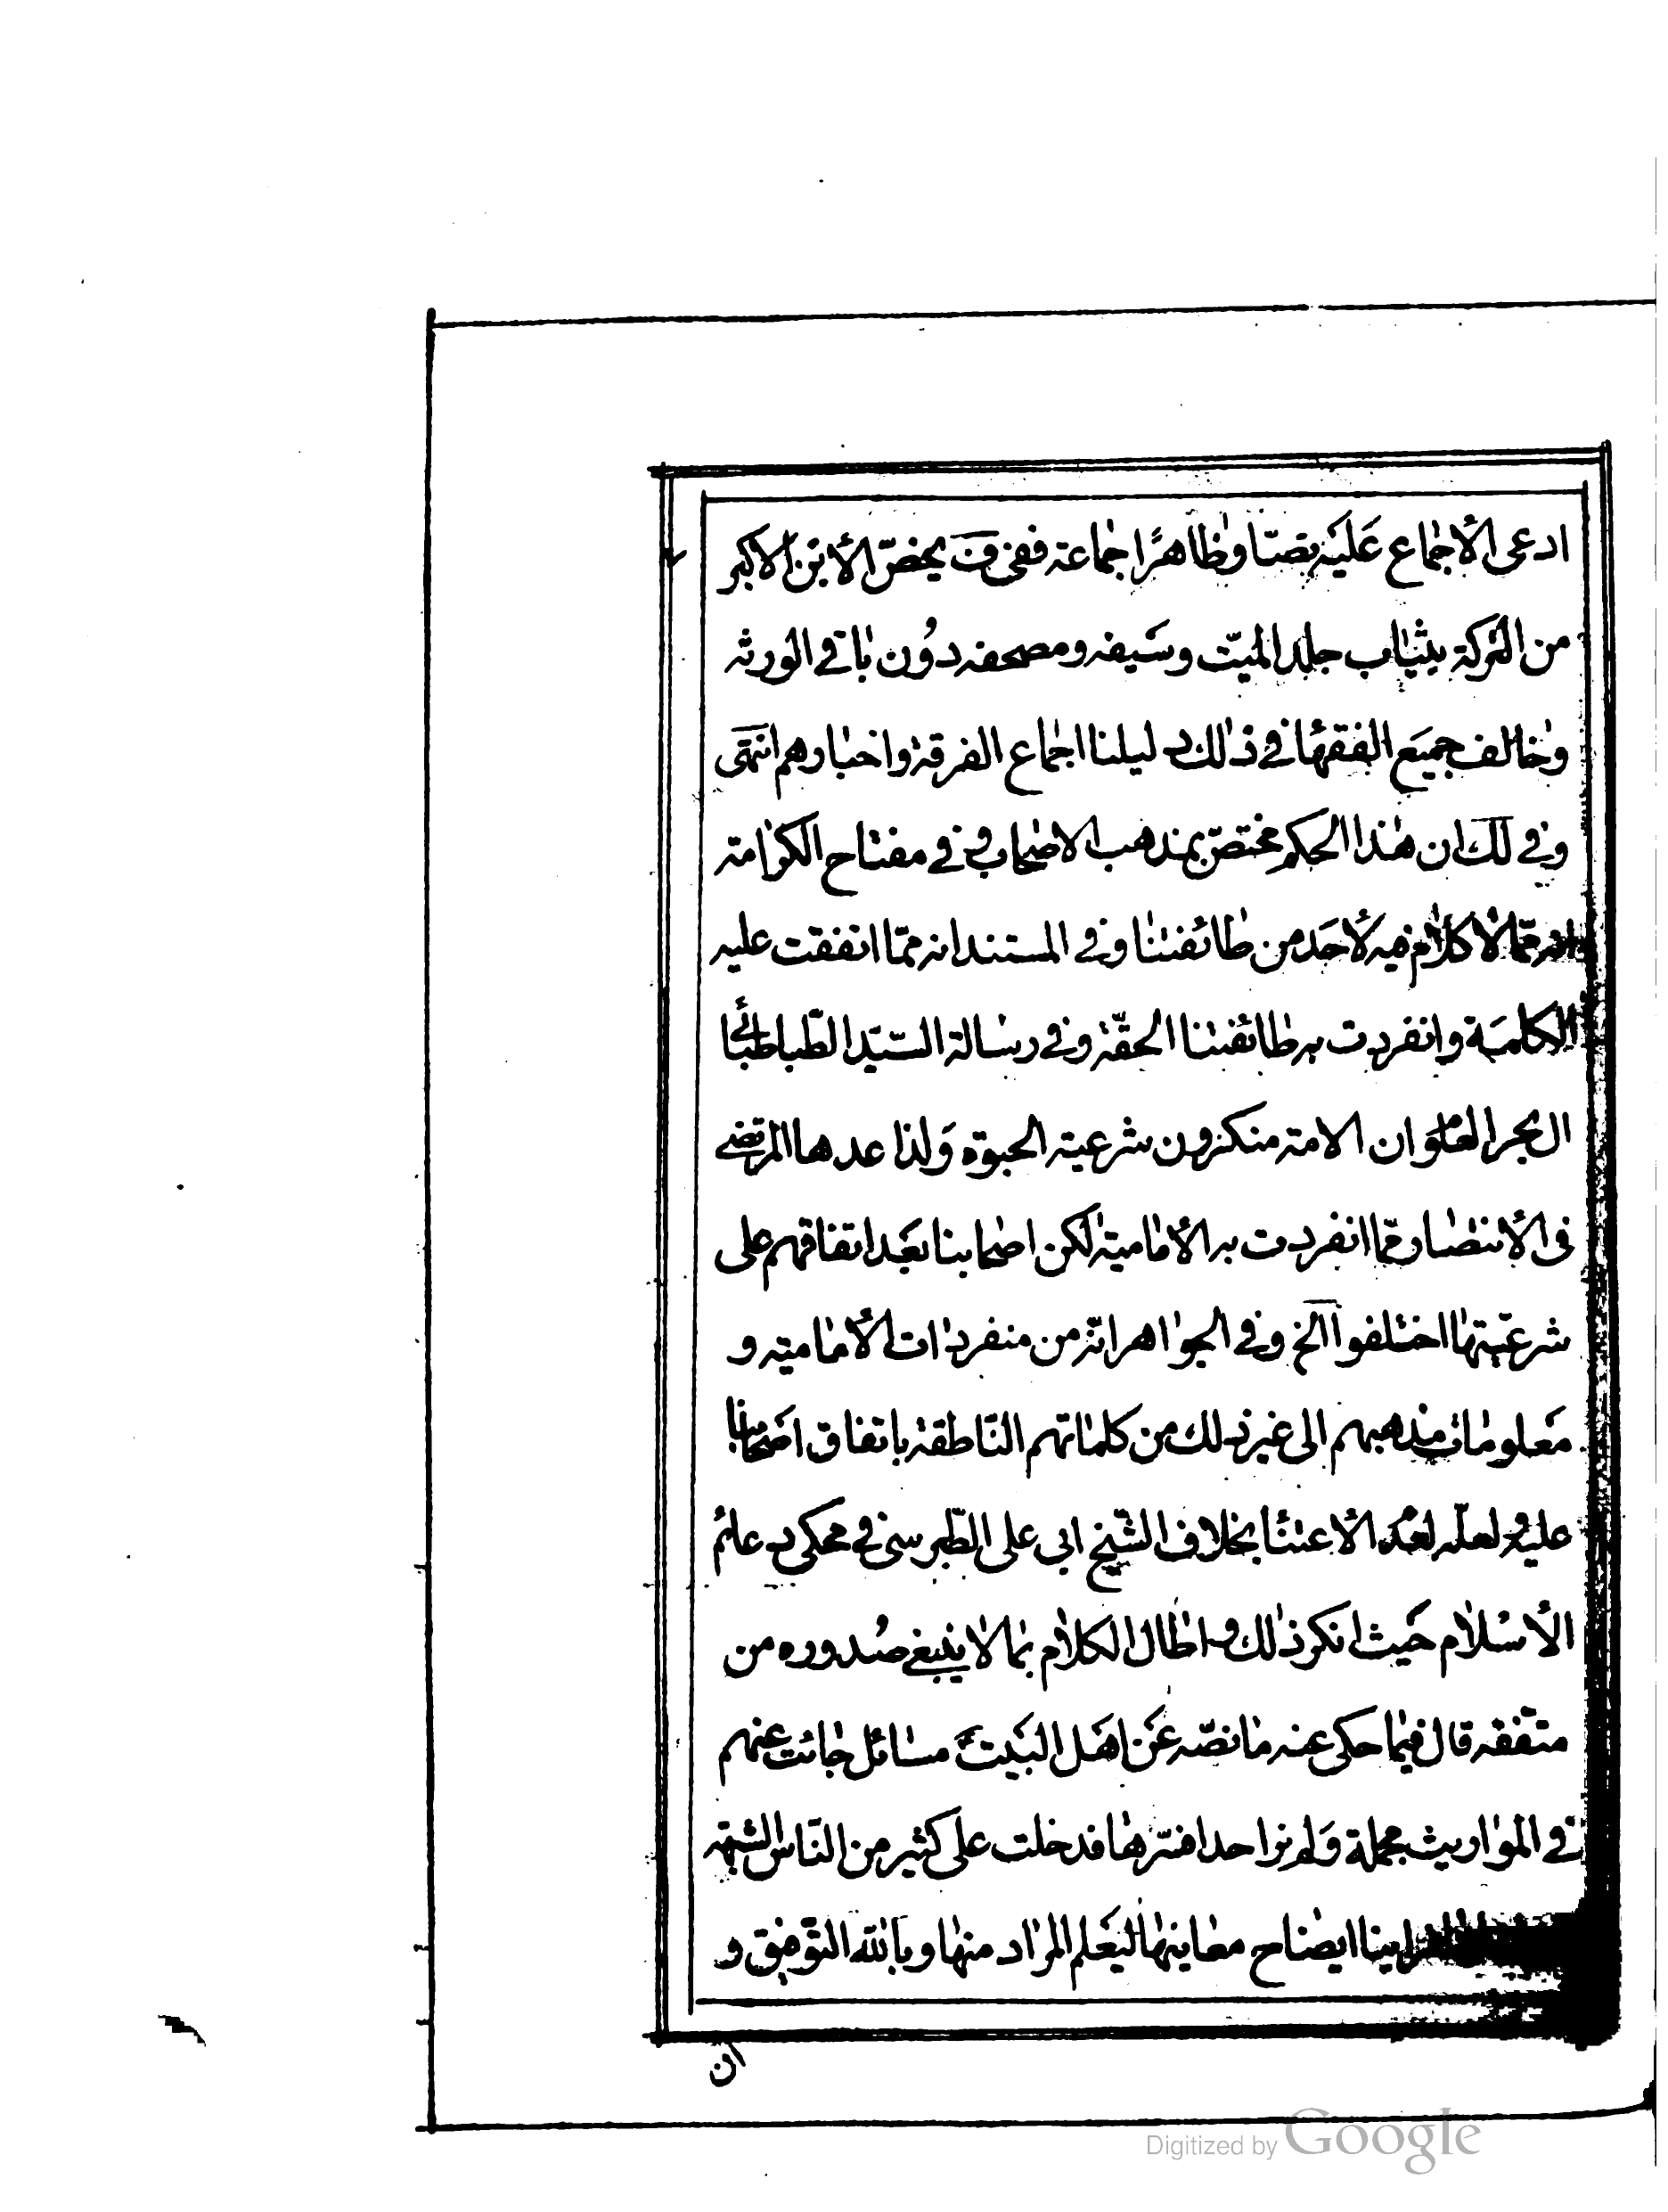 ادعى الأجماع عليه نصّا وظاهرًا جماعة ففى ف يخصّ الأبن الاكبر
من التركة بثياب جلد الميّت وسيفه ومصحفه دون باقي الورثه
وخالف جميع الفقهاء في ذالك دليلنا اجماع الفرقة واخبارهم انتهى
وفي لك ان هذا الحكم مختصّ بمذهب الاصحاب وفي مفتاح الكرامة
انه ممّا لا كلام فيه لأحد من طائفتنا وفي المستند انه ممّا اتفقت عليه
الكلمة وانفردت به طائفتنا الحقّة وفي رسالة السّيّد الطّباطبائي
ال بحر العلوم ان الامة منكرون شرعية الحبوة ولذا عدها المرتضى
في الأنتصار ممّا انفردت به الأمامية لكن اصحابنا بعد اتفاقهم على
شرعيّتها اختلفوا الخ وفي الجواهر انّه من منفردات الأمامية و
معلومات مذهبهم الى غير ذلك من كلماتهم النّاطقة باتفاق اصحابنا
عليه ولعلّه لعدم الأعتناء بخلاف الشّيخ ابي على الطّبرسى في محكى دعائم
الأسلام حيث انكر ذالك واطال الكلام بما لا ينبغي صدوره من
متفقه قال فيما حكى عنه ما نصّه عن اهل البيت مسائل جائت عنهم
في المواريث مجملة ولم نر احدا فسّرها فدخلت على كثير من النّاس الشبهه
راينا ايضاح معانيها ليعلم المراد منها وبالله التّوفيق و
ان
Digitized by Google